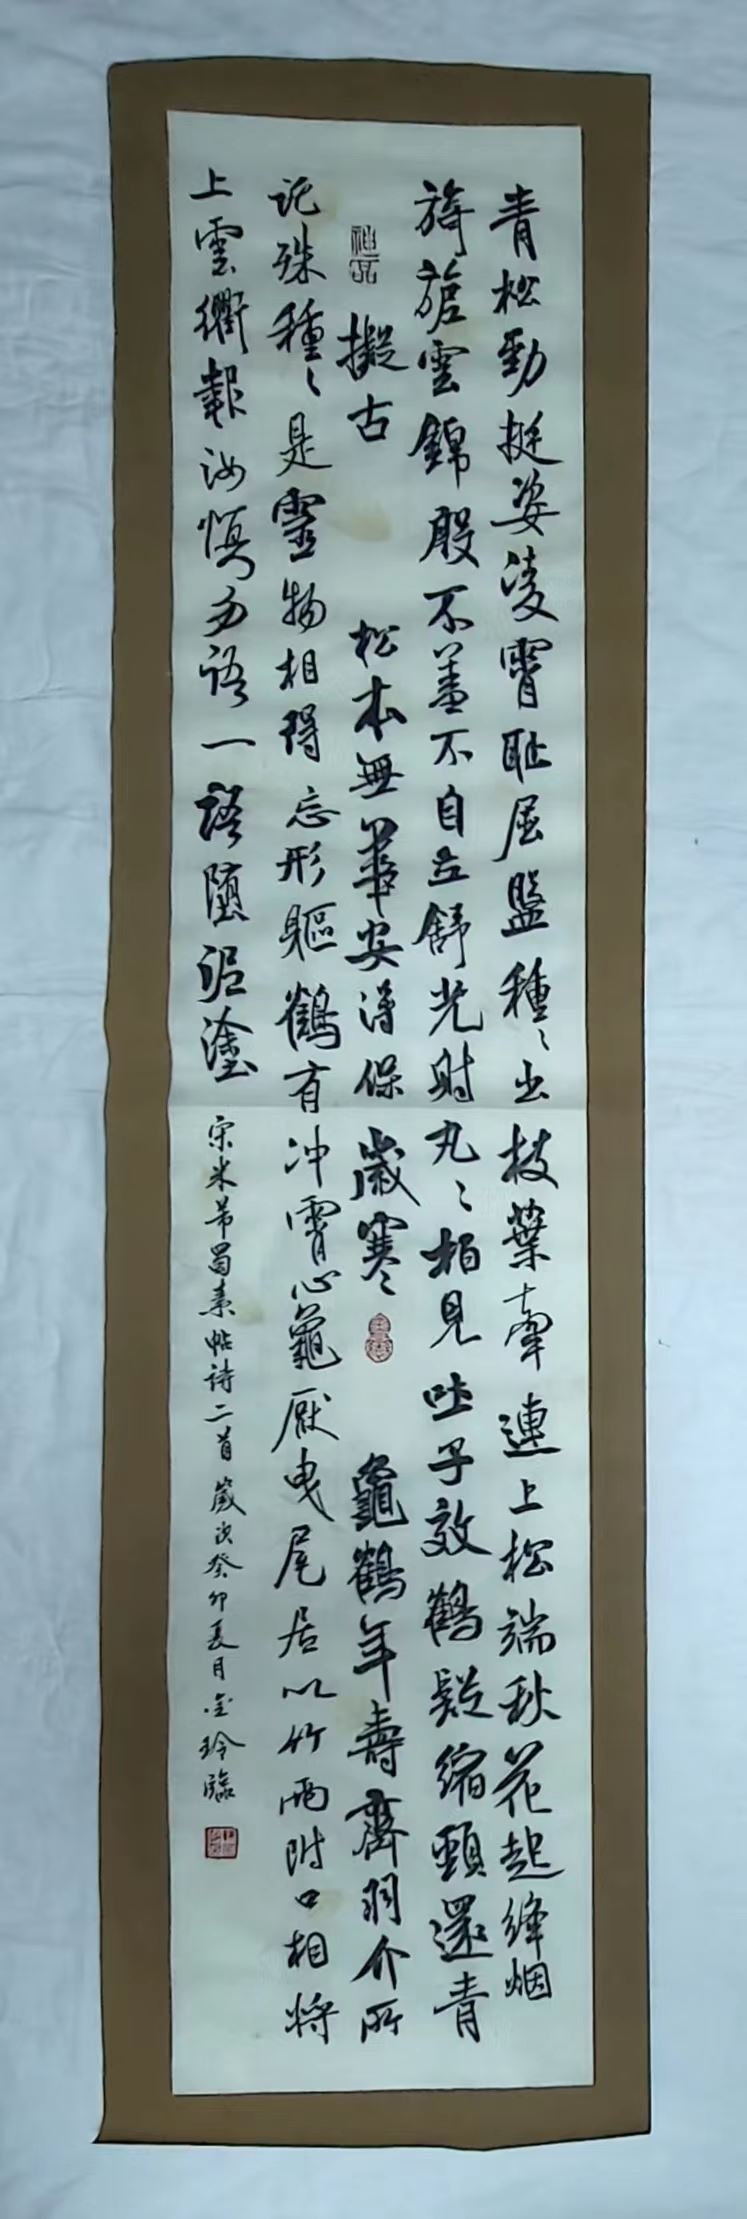 青松勁挺姿凌霄恥屈盤種〻出枝葉牽連上松端秋花起絳烟
旖旎雲錦殷不羞不自立舒光射丸〻柏見吐子效鶴疑縮頸還青
擬古 松本無華安得保歲寒 龜鶴年壽齊羽介所
託殊種〻是靈物相得忘形軀鶴有冲霄心龜厭曳尾居以竹兩附口相將
上雲衢報汝慎勿語一語墮泥塗 宋米芾蜀素帖诗二首 歲次癸卯夏月金玲臨